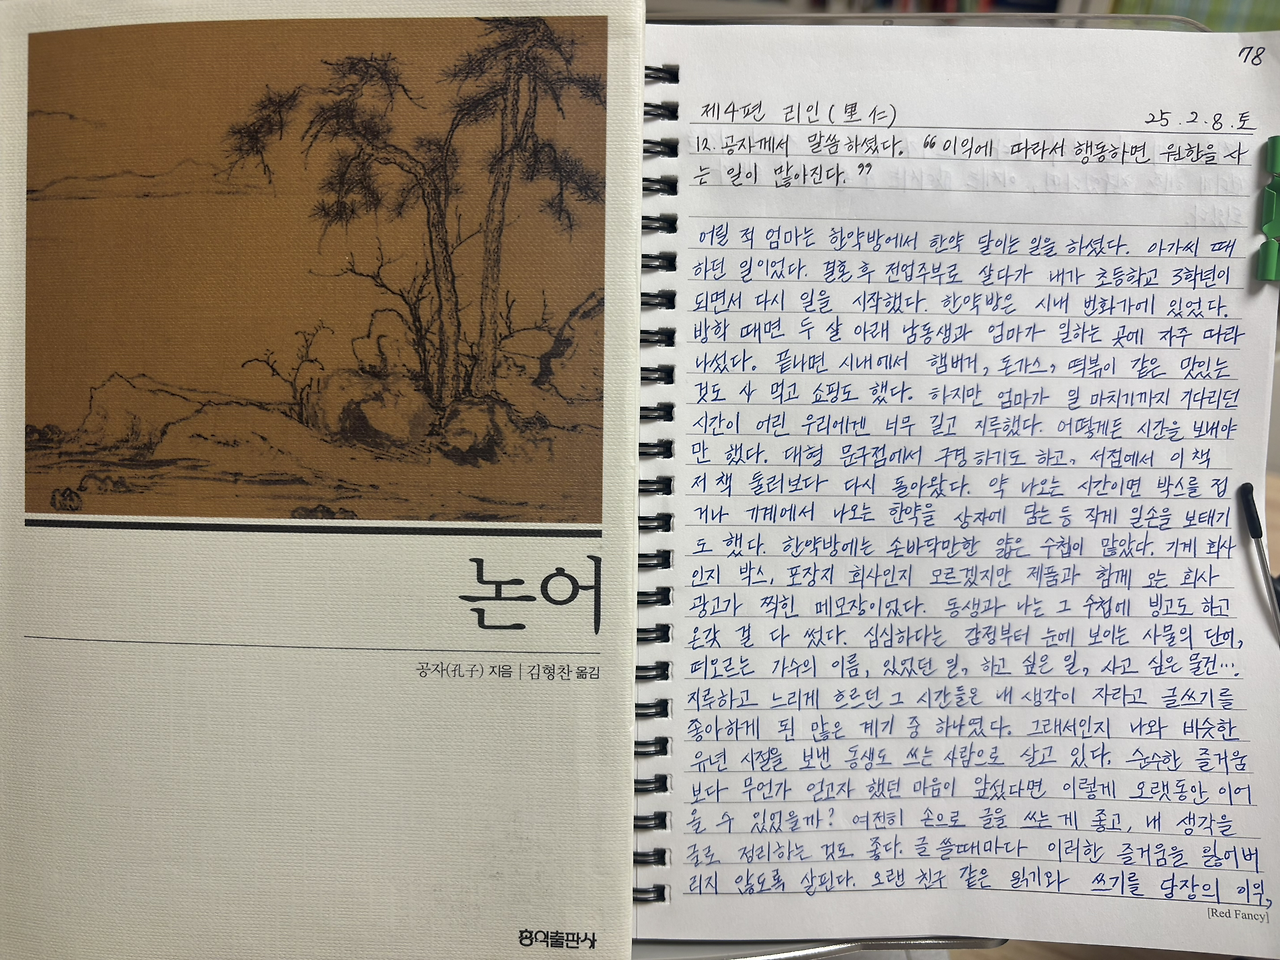 논어
공자(孔子) 지음 | 김형찬 옮김
홍익출판사
78
제4편 리인(里仁) 25.2.8.토
12. 공자께서 말씀하셨다. “이익에 따라서 행동하면 원한을 사
는 일이 많아진다.”
어릴 적 엄마는 한약방에서 한약 달이는 일을 하셨다. 아가씨 때
하던 일이었다. 결혼 후 전업주부로 살다가 내가 초등학교 3학년이
되면서 다시 일을 시작했다. 한약방은 시내 번화가에 있었다.
방학 때면 두 살 아래 남동생과 엄마가 일하는 곳에 자주 따라
나섰다. 끝나면 시내에서 햄버거, 돈가스, 떡볶이 같은 맛있는
것도 사 먹고 쇼핑도 했다. 하지만 엄마가 일 마치기까지 기다리던
시간이 어린 우리에겐 너무 길고 지루했다. 어떻게든 시간을 보내야
만 했다. 대형 문구점에서 구경하기도 하고, 서점에서 이 책
저 책 둘러보다 다시 돌아왔다. 약 나오는 시간이면 박스를 접
거나 기계에서 나오는 한약을 상자에 담는 등 작게 일손을 보태기
도 했다. 한약방에는 손바닥만한 얇은 수첩이 많았다. 기계 회사
인지 박스, 포장지 회사인지 모르겠지만 제품과 함께 오는 회사
광고가 찍힌 메모장이었다. 동생과 나는 그 수첩에 빙고도 하고
온갖 걸 다 썼다. 심심하다는 감정부터 눈에 보이는 사물의 단어,
떠오르는 가수의 이름, 있었던 일, 하고 싶은 일, 사고 싶은 물건…
지루하고 느리게 흐르던 그 시간들은 내 생각이 자라고 글쓰기를
좋아하게 된 많은 계기 중 하나였다. 그래서인지 나와 비슷한
유년 시절을 보낸 동생도 쓰는 사람으로 살고 있다. 순수한 즐거움
보다 무언가 얻고자 했던 마음이 앞섰다면 이렇게 오랫동안 이어
올 수 있었을까? 여전히 손으로 글을 쓰는 게 좋고, 내 생각을
글로 정리하는 것도 좋다. 글 쓸때마다 이러한 즐거움을 잃어버
리지 않도록 살핀다. 오랜 친구 같은 읽기와 쓰기를 당장의 이익,
[Red Fancy]